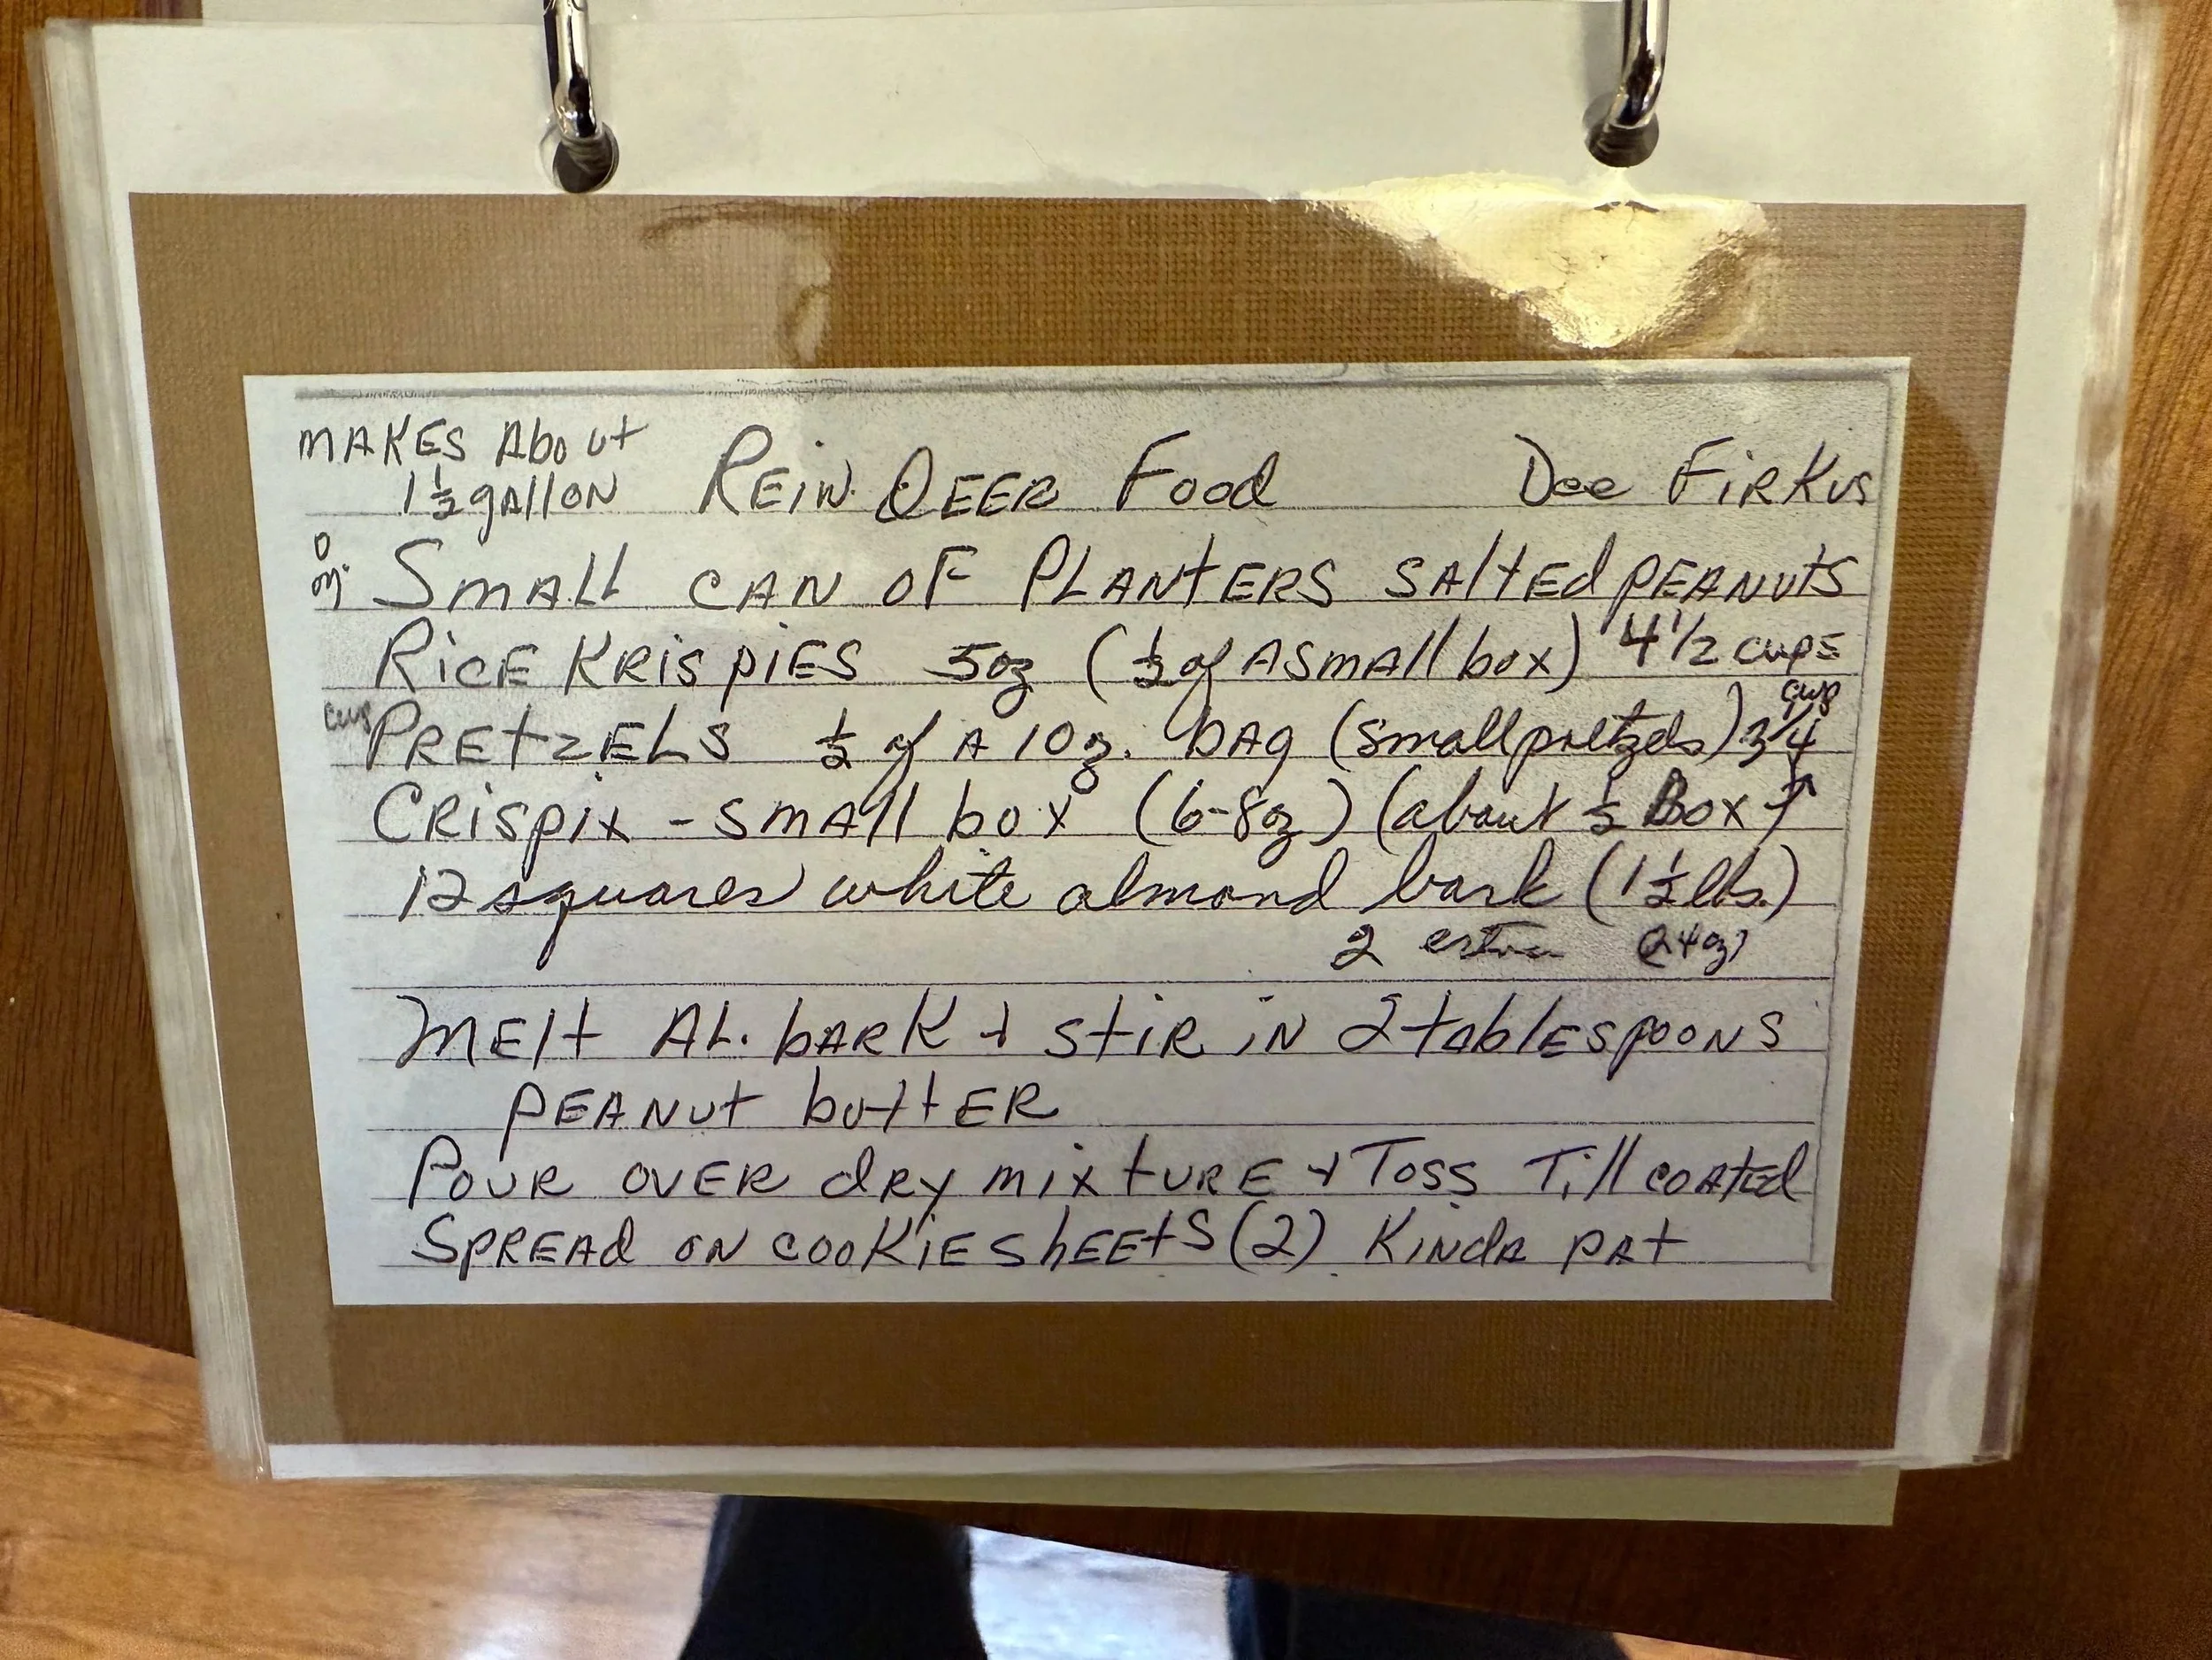 MAKES About
1½ gallon REIN DEER Food Dee FiRKus
Small CAN OF PLANTERS SAltEd PEANUTS
RICE KRISPIES 5oz (½ of A small box) 4 1/2 cups
cup PRETZELS ½ of A 10 oz. bAg (small pretzels) 3/4 cup
CRispix - small box (6-8oz) (about ½ Box)
12 squares white almond bark (1½ lbs.)
2 extra (24oz)
MElt AL. bARK + stiR iN 2 tablESpooNS
pEANut buttER
PouR ovER dRy mixtURE + Toss Till coated
SPREAd ON cookiE shEEtS (2) KiNdA pAt